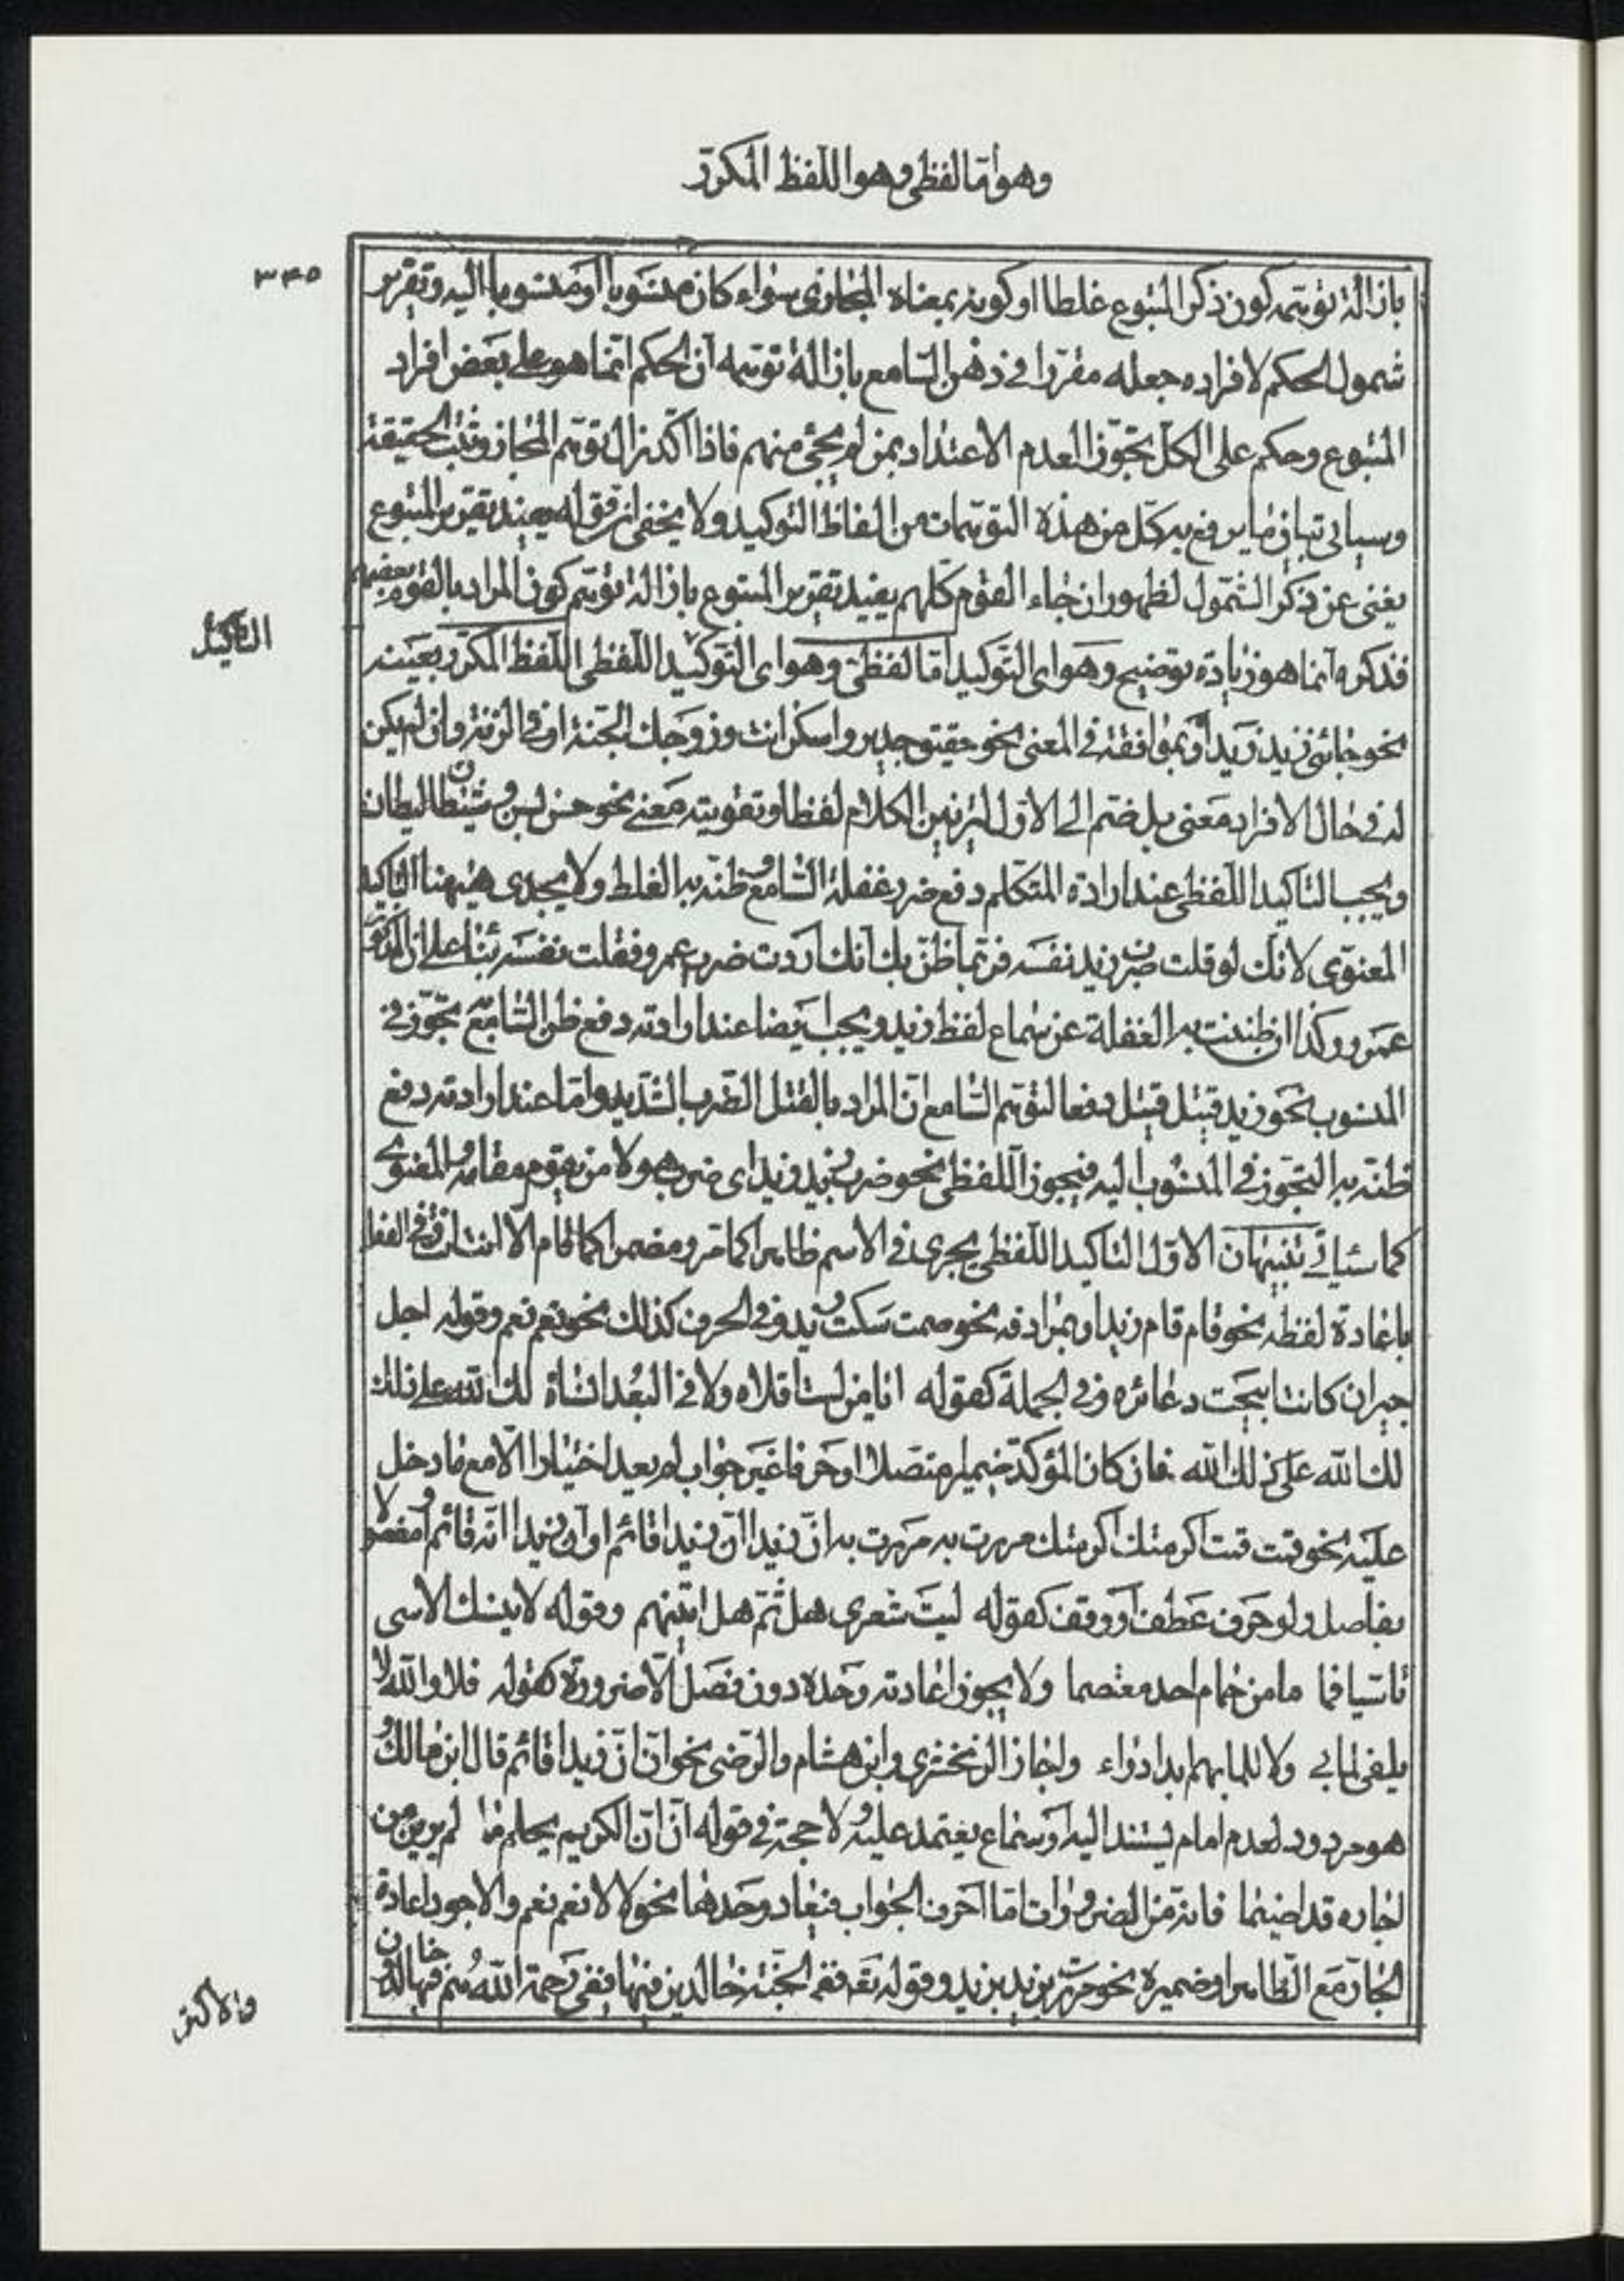 وهو اما لفظي وهو اللفظ المكرر
٣٤٥
بازالة توهمه كون ذكر المتبوع غلطا او كونه بمعناه المجازى سواء كان منسوبا او منسوبا اليه وتقرير
شمول الحكم لافراده جعله مقررا في ذهن السامع بازالة توهمه ان الحكم انما هو على بعض افراد
المتبوع وحكم على الكل تجوزا لعدم الاعتداد بمن لم يجئ منهم فاذا اكد زال توهم المجاز وثبت الحقيقة
وسياتي تبيان ما يرفع به كل من هذه التوهمات من الفاظ التوكيد ولا يخفى ان قوله يفيد تقرير المتبوع
يغنى عن ذكر الشمول لظهور ان جاء القوم كلهم يفيد تقرير المتبوع بازالة توهم كون المراد بالقوم بعضهم
التاكيد
فذكره انما هو زيادة توضيح وهو اى التوكيد اما لفظى وهو اى التوكيد اللفظى اللفظ المكرر بعينه
نحو جائنى زيد زيد او بموافقة في المعنى نحو حقيق جدير واسكن انت وزوجك الجنة او في الزنة وان لم يكن
له في حال الافراد معنى بل ضم الى الاول لتزيين الكلام لفظا وتقويته معنى نحو حسن بسن و شيطان ليطان
ويجب التاكيد اللفظى عند ارادة المتكلم دفع ضرر غفلة السامع و ظنه به الغلط ولا يجدى هيهنا التاكيد
المعنوى لانك لو قلت ضرب زيد نفسه فربما ظن بك انك اردت ضرب عمرو فقلت نفسه بناء على ان المذكور
عمرو وكذا ان ظننت به الغفلة عن سماع لفظ زيد ويجب ايضا عند ارادته دفع ظن السامع به تجوزا في
المنسوب نحو زيد قتيل قتيل دفعا لتوهم السامع ان المراد بالقتل الضرب الشديد واما عند ارادته دفع
ظنه به التجوز في المنسوب اليه فيجوز اللفظى نحو ضرب زيد زيد اى ضرب هو لا من يقوم مقامه و المعنوى
كما سياتي تنبيهان الاول التاكيد اللفظى يجرى في الاسم ظاهرا كما مر ومضمرا كما قام الا انت انت وفي الفعل
باعادة لفظه نحو قام قام زيد او بمرادفه نحو صمت سكت زيد وفي الحرف كذلك نحو نعم نعم وقوله اجل
جيران كانت ابيحت دعائره وفي الجملة كقوله ايا من لست اقلاه ولا في البعد انساه لك الله على ذلك
لك الله على ذلك لك الله فان كان المؤكد ضميرا متصلا او حرفا غير جواب لم يعد اختيارا الا مع ما دخل
عليه نحو قمت قمت اكرمتك اكرمتك مررت به مررت به ان زيدا ان زيدا قائم او ان زيدا انه قائم او مفصولا
بفاصل ولو حرف عطف او وقف كقوله ليت شعرى هل ثم هل آتينهم وقوله لا ينسك الاسى
تاسيا فما ما من حمام احد معتصما ولا يجوز اعادته وحده دون فصل الا ضرورة كقوله فلا والله لا
يلفى لما بي ولا للما بهم ابدا دواء واجاز الزمخشري وابن هشام والرضى نحو ان ان زيدا قائم قال ابن مالك و
هو مردود لعدم امام يستند اليه او سماع يعتمد عليه و لا حجة في قوله ان ان الكريم يحلم ما لم يرين من
اجاره قد اضيما فانه من الضرورات اما احرف الجواب فتعاد وحدها نحو لا لا نعم نعم والاجود اعادة
الجار مع الظاهر او ضميره نحو مررت بزيد بزيد وقوله تعه ففي الجنة خالدين فيها ففي رحمة الله هم فيها خالدون
والاكثر